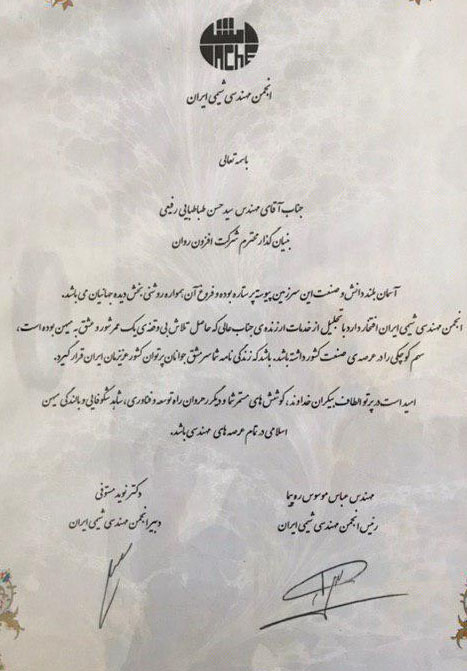 IAChE
انجمن مهندسی شیمی ایران
باسمه تعالی
جناب آقای مهندس سید حسن طباطبایی رفیعی
بنیان گذار محترم شرکت افزون روان
آسمان بلند دانش و صنعت این سرزمین پیوسته پر ستاره بوده و فروغ آن همواره روشنی بخش دیده جهانیان می باشد.
انجمن مهندسی شیمی ایران افتخار دارد با تجلیل از خدمات ارزنده ی جناب عالی که حاصل تلاش بی وقفه ی یک عمر شور و عشق به میهن بوده است،
سهم کوچکی را در عرصه ی صنعت کشور داشته باشد. باشد که زندگی نامه شما سرمشق جوانان پرتوان کشور عزیزمان ایران قرار گیرد.
امید است در پرتو الطاف بیکران خداوند، کوشش های مستمر شما و دیگر رهروان راه توسعه و فناوری، شاهد شکوفایی و بالندگی میهن
اسلامی در تمام عرصه های مهندسی باشد.
مهندس عباس موسوی رهپیما
رئیس انجمن مهندسی شیمی ایران
دکتر نوید مستوفی
دبیر انجمن مهندسی شیمی ایران